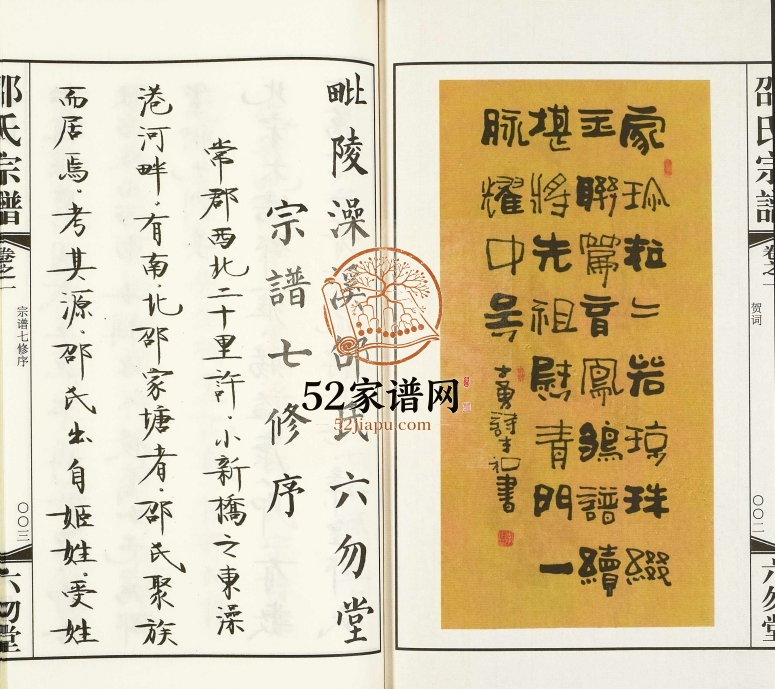 邵氏宗譜
卷之一
贺词
〇〇二
六勿堂
家珍粒二若琼珠綴
玉聯篇音鳳譜續
堪將先祖慰青門一
脉耀中吴
士勇詩和書
毗陵澡溪邵氏六勿堂
宗譜七修序
常郡西北二十里許，小新橋之東澡
港河畔，有南、北邵家塘者，邵氏聚族
而居焉。考其源，邵氏出自姬姓，受姓
邵氏宗譜
卷之一
宗谱七修序
〇〇三
六勿堂
52家谱网
52jiapu.com